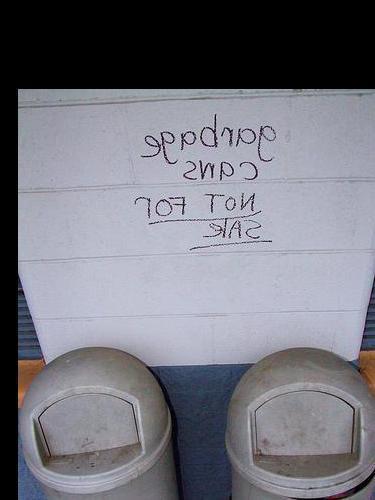 garbage
cans
NOT FOR
SAlE